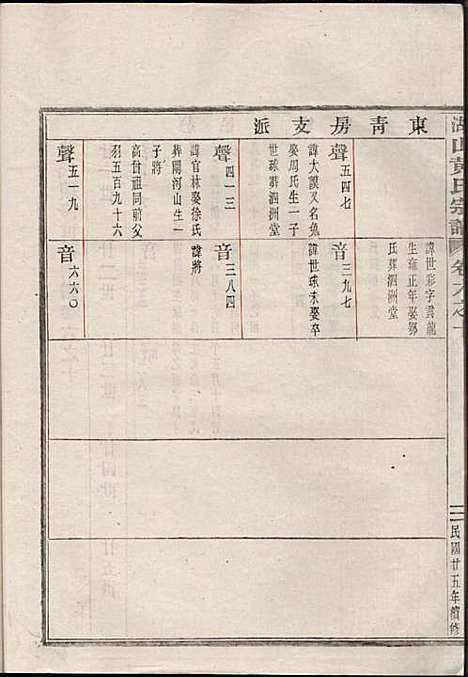 湖山黃氏宗譜
民國廿五年續修
東青房支派
諱世彩字雲龍
生雍正年娶鄧
氏葬泗洲堂
聲五四七
諱大謨又名兔
娶周氏生一子
世球葬泗洲堂
音三九七
諱世球未娶卒
聲四一三
諱官林娶徐氏
葬關河山生一
子將
音三八四
諱將
高曾祖同前父
礽五百九十六
聲五一九
音六六〇